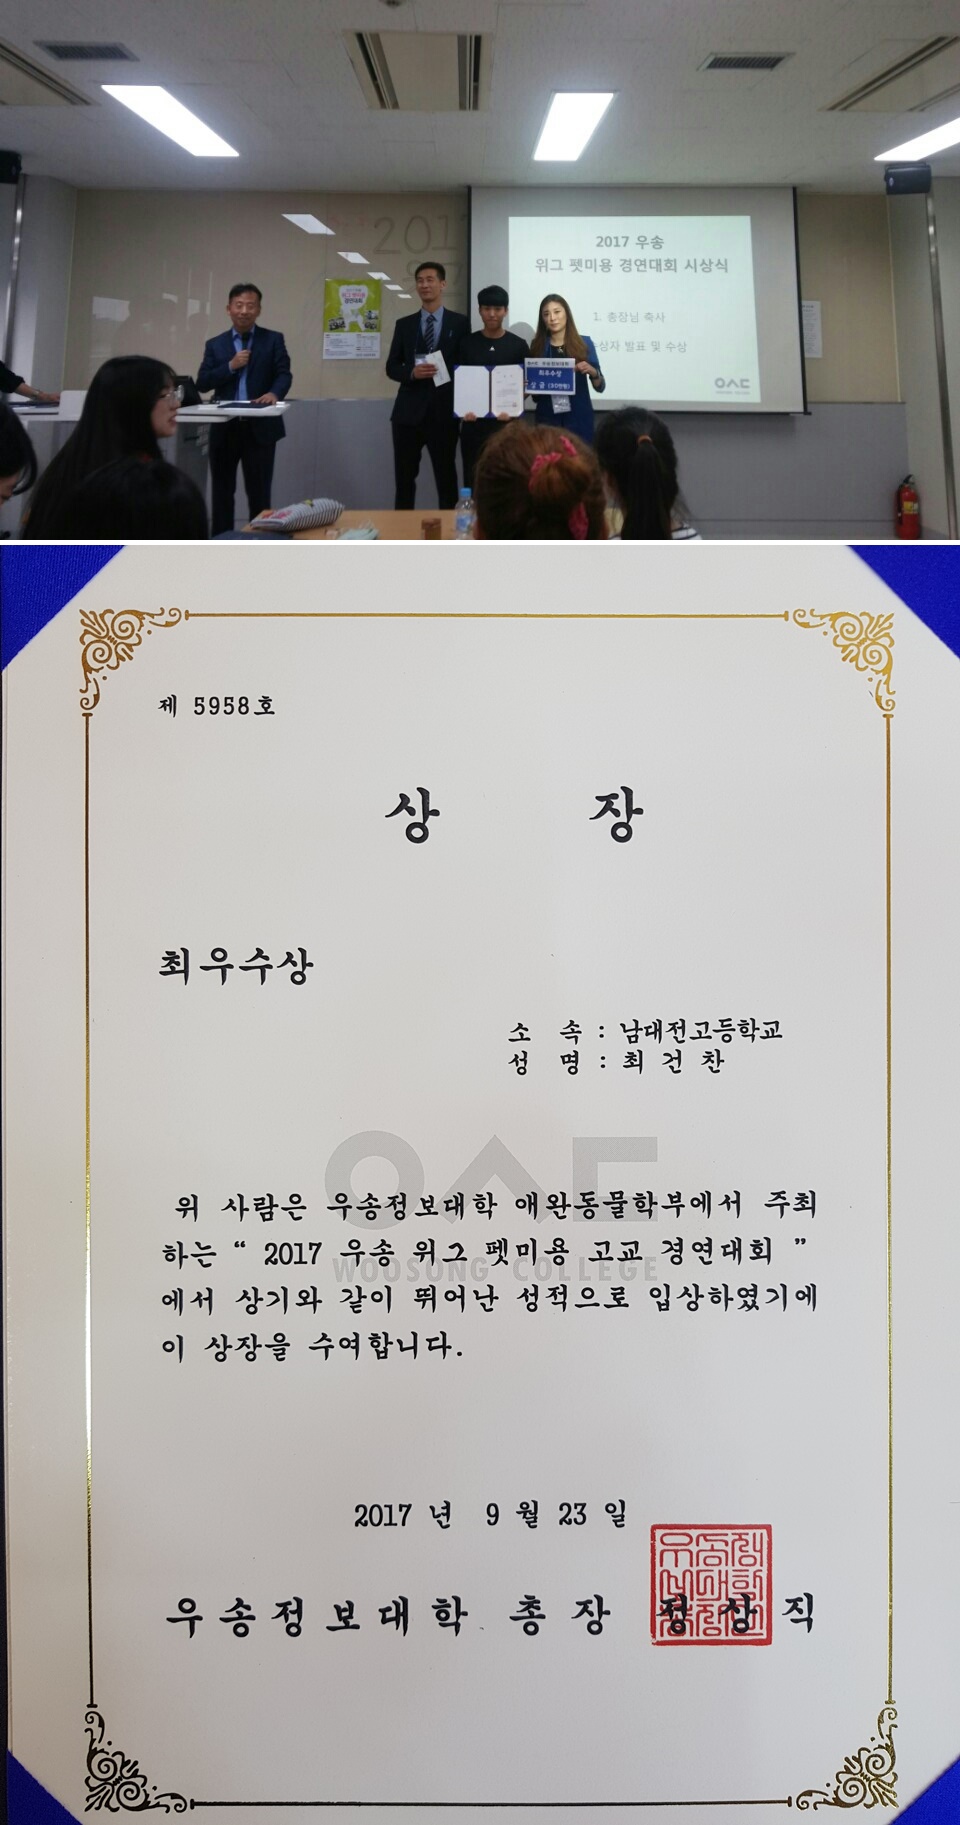 2017 우송
위그 펫미용 경연대회 시상식
1. 총장님 축사
상자 발표 및 수상
우송정보대학
최우수상
상 금 (30만원)
제 5958호
상 장
최우수상
소 속 : 남대전고등학교
성 명 : 최 건 찬
위 사람은 우송정보대학 애완동물학부에서 주최
하는 “ 2017 우송 위그 펫미용 고교 경연대회 ”
에서 상기와 같이 뛰어난 성적으로 입상하였기에
이 상장을 수여합니다.
WOOSONG COLLEGE
2017 년 9 월 23 일
우송정보대학 총장 정상직